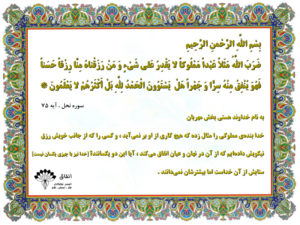 بِسْمِ اللَّهِ الرَّحْمَنِ الرَّحِيمِ
ضَرَبَ اللَّهُ مَثَلًا عَبْدًا مَمْلُوكًا لَا يَقْدِرُ عَلَى شَيْءٍ وَ مَنْ رَزَقْنَاهُ مِنَّا رِزْقًا حَسَنًا
فَهُوَ يُنْفِقُ مِنْهُ سِرًّا وَ جَهْرًا هَلْ يَسْتَوُونَ الْحَمْدُ لِلَّهِ بَلْ أَكْثَرُهُمْ لَا يَعْلَمُونَ
سوره نحل ، آیه ۷۵
به نام خداوند هستی بخش مهربان
خدا بنده‌ی مملوکی را مثال زده که هیچ کاری از او بر نمی‌آید ، و کسی را که از جانب خویش رزق
نیکویش داده‌ایم که از آن در نهان و عیان انفاق می‌کند ، آیا این دو یکسانند؟ (خدا نیز با چیزی یکسان نیست)
ستایش از آن خداست اما بیشترشان نمی‌دانند .
انفاق